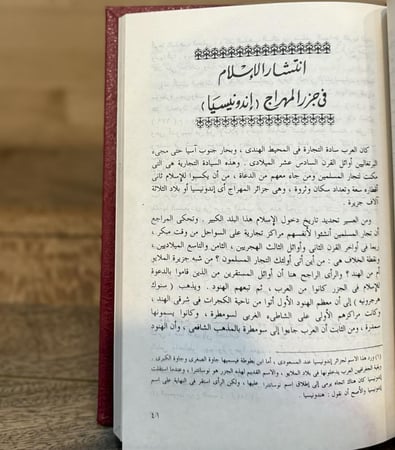 انتشار الإسلام
فى جزر المهراج (إندونيسيا)
كان العرب سادة التجارة فى المحيط الهندى ، وبحار جنوب آسيا حتى مجىء
البرتغاليين أوائل القرن السادس عشر الميلادى . وهذه السيادة التجارية هى التى
مكنت لتجار المسلمين ومن جاء معهم من الدعاة ، من أن يكسبوا للإسلام ثانى
أقطاره سعة وتعداد سكان وثروة ، وهى جزائر المهراج أى إندونيسيا أو بلاد الثلاثة
آلاف جزيرة .
ومن العسير تحديد تاريخ دخول الإسلام هذا البلد الكبير . وتحكى المراجع
أن تجار المسلمين أنشئوا لأنفسهم مراكز تجارية على السواحل من وقت مبكر ،
ربما فى أواخر القرن الثانى وأوائل الثالث الهجريين ، الثامن والتاسع الميلاديين ،
ونقطة الخلاف هى : من أين أتى أولئك التجار المسلمون ؟ من شبه جزيرة الملايو
أم من الهند ؟ والرأى الراجح هنا أن أوائل المستقرين من الذين قاموا بالدعوة
للإسلام فى الجزر كانوا من العرب ، ثم تبعهم الهنود . ويذهب ( سنوك
هرجرونيه ) إلى أن معظم الهنود الأول أتوا من ناحية الكجرات فى شرقى الهند ،
وكانت مراكزهم الأولى على الشاطىء الغربى لسومطرة ، وكانوا يسمونها
سمدرة ، ومن الثابت أن العرب جاءوا إلى سومطرة بالمذهب الشافعى ، وأن الهنود
(١) ورد هذا الاسم لجزائر إندونيسيا عند المسعودى ، أما ابن بطوطة فيسميها جاوة الصغرى وجاوة الكبرى .
وبقية الجغرافيين العرب يدخلونها فى بلاد الملايو ، والاسم القديم لهذه الجزر هو نوسانتدرا ، وعندما استقلت
إندونيسيا كان هناك اتجاه يرمى إلى إطلاق اسم نوسانتدرا عليها ، ولكن الرأى استقر فى النهاية على اسم
إندونيسيا والأصح أن نقول : هندونيسيا .
٤٦